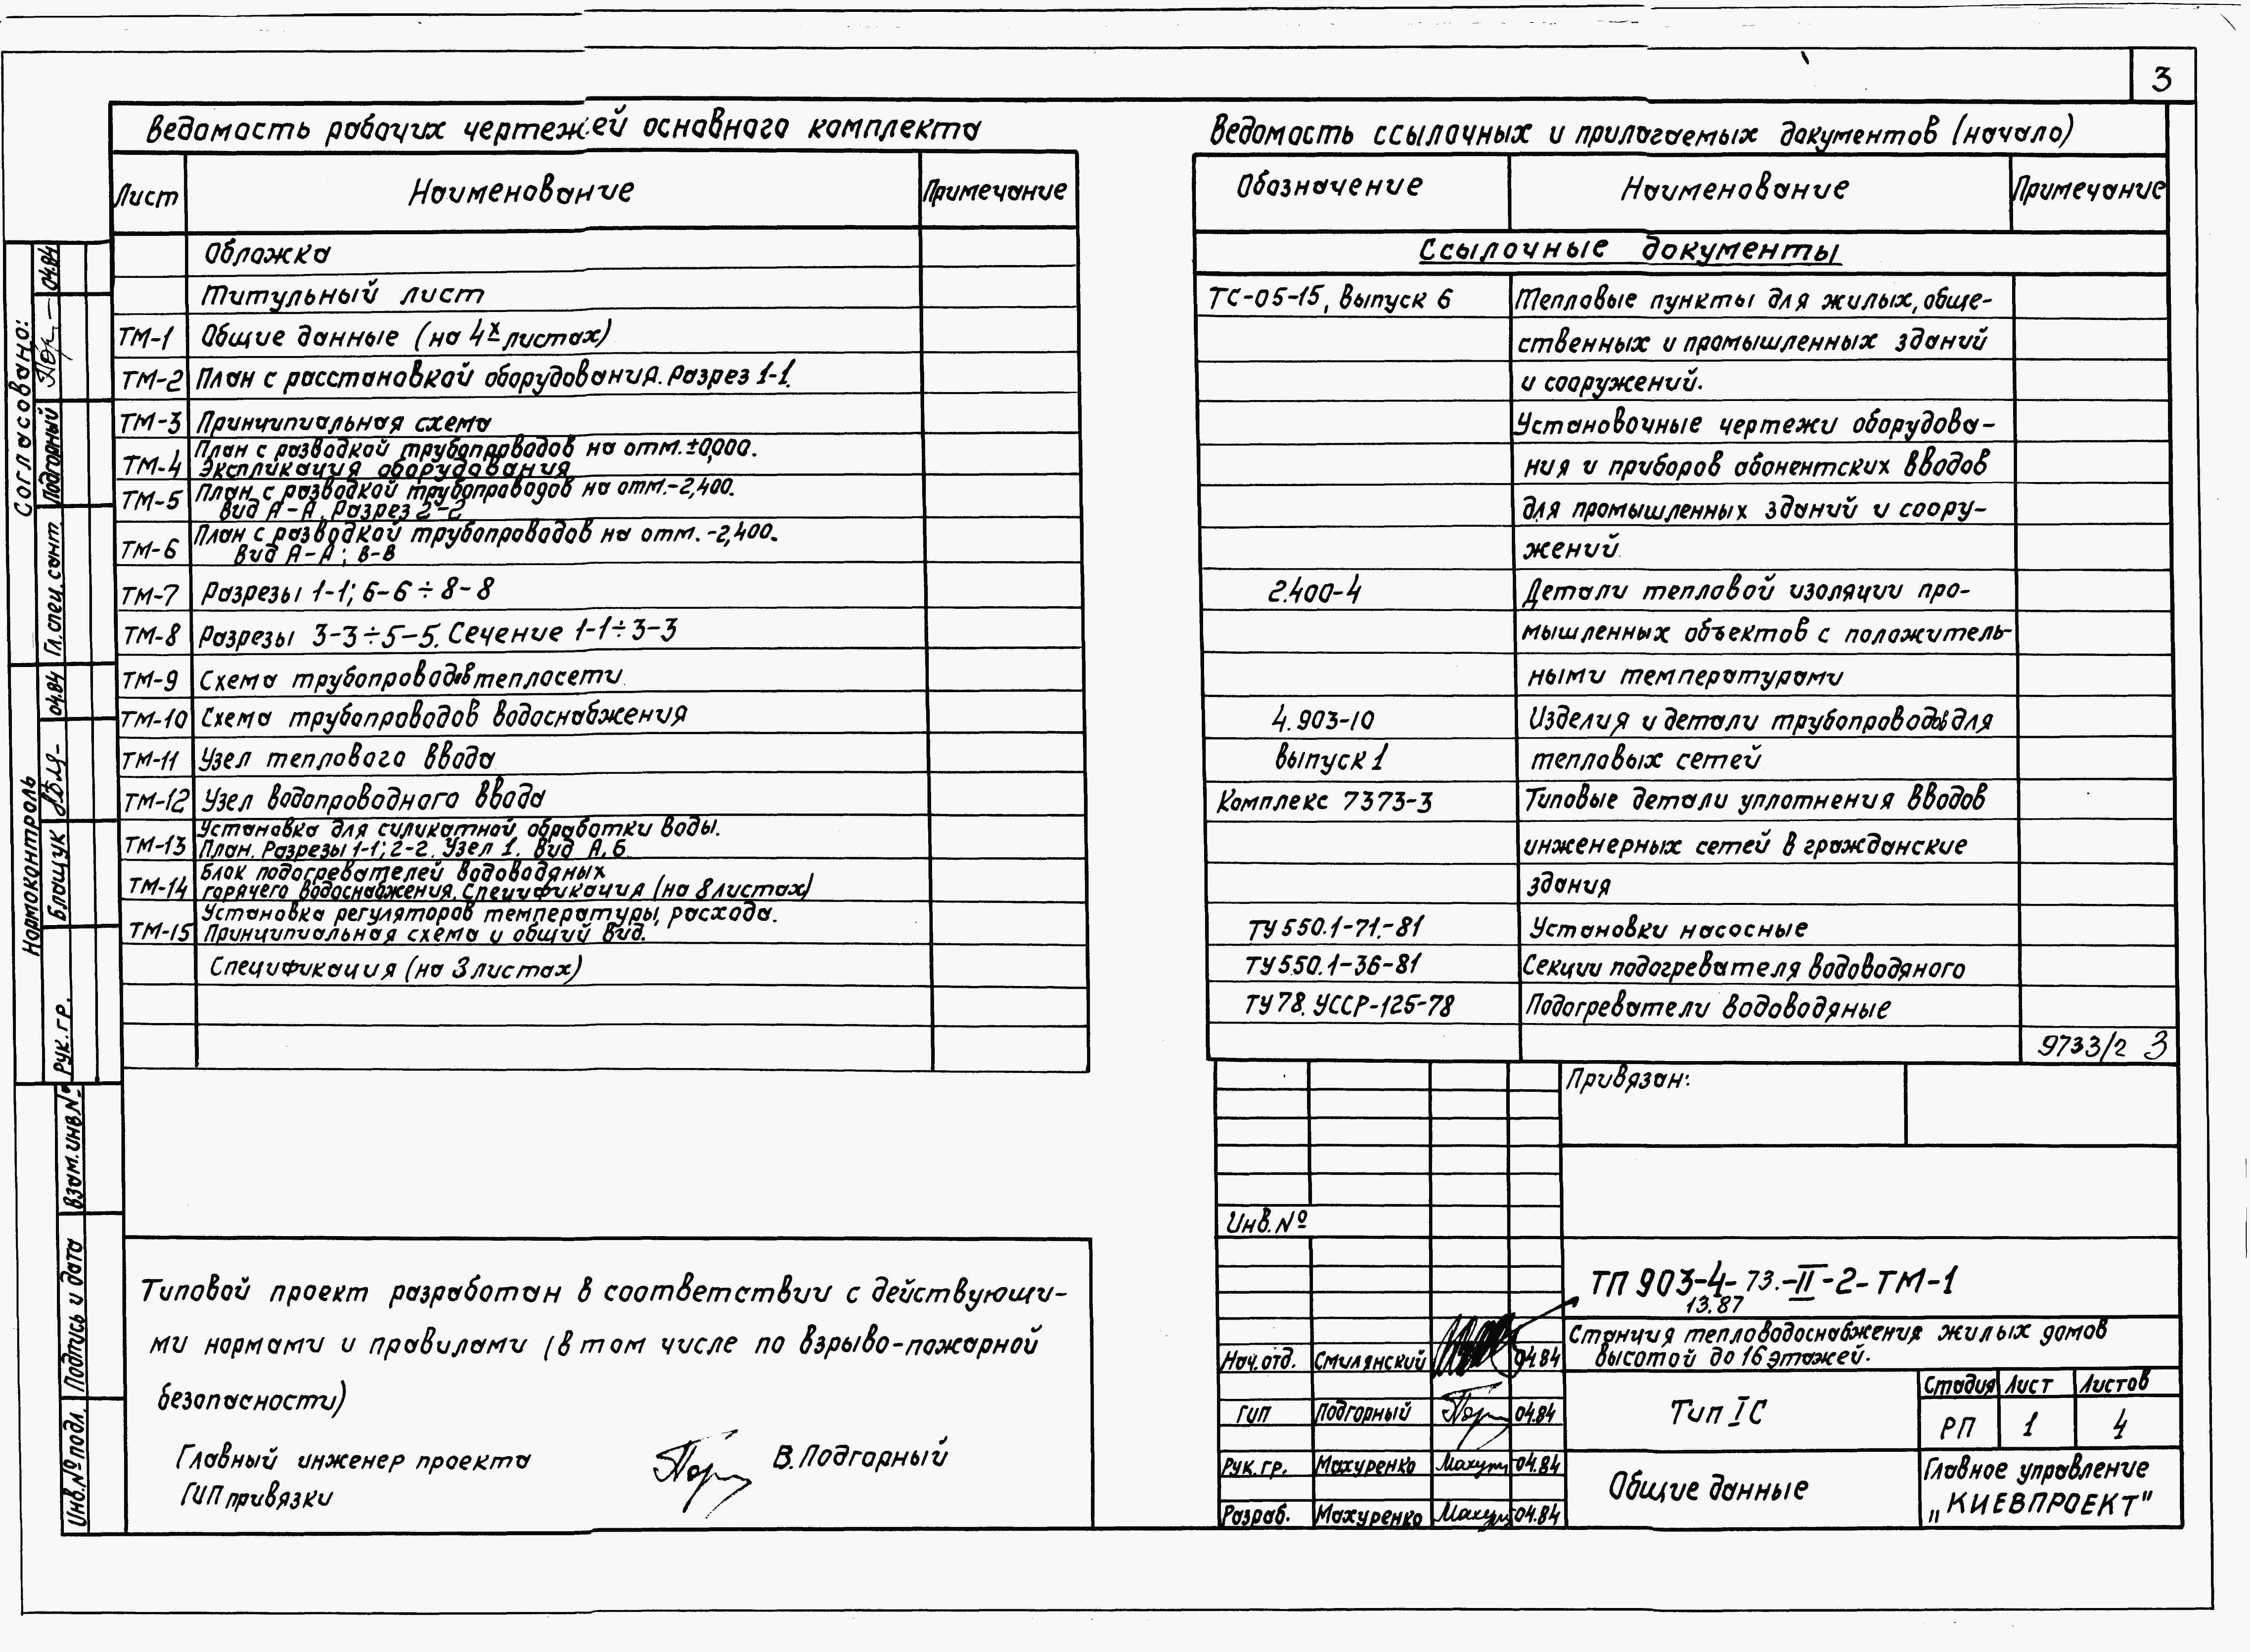 3
Ведомость рабочих чертежей основного комплекта
Лист Наименование Примечание
Обложка
Титульный лист
ТМ-1 Общие данные (на 4х листах)
ТМ-2 План с расстановкой оборудования. Разрез 1-1.
ТМ-3 Принципиальная схема
ТМ-4 План с разводкой трубопроводов на отм.±0,000.
Экспликация оборудования
ТМ-5 План с разводкой трубопроводов на отм.-2,400.
Вид А-А. Разрез 2-2
ТМ-6 План с разводкой трубопроводов на отм.-2,400.
Вид А-А; В-В
ТМ-7 Разрезы 1-1; 6-6÷8-8
ТМ-8 Разрезы 3-3÷5-5. Сечение 1-1÷3-3
ТМ-9 Схема трубопроводов теплосети
ТМ-10 Схема трубопроводов водоснабжения
ТМ-11 Узел теплового ввода
ТМ-12 Узел водопроводного ввода
ТМ-13 Установка для силикатной обработки воды.
План. Разрезы 1-1; 2-2. Узел 1. Вид А, Б
ТМ-14 Блок подогревателей водоводяных
горячего водоснабжения. Спецификация (на 8 листах)
ТМ-15 Установка регуляторов температуры, расхода.
Принципиальная схема и общий вид.
Спецификация (на 3 листах)
Ведомость ссылочных и прилагаемых документов (начало)
Обозначение Наименование Примечание
Ссылочные документы
ТС-05-15, выпуск 6 Тепловые пункты для жилых, обще-
ственных и промышленных зданий
и сооружений.
Установочные чертежи оборудова-
ния и приборов абонентских вводов
для промышленных зданий и соору-
жений
2.400-4 Детали тепловой изоляции про-
мышленных объектов с положитель-
ными температурами
4.903-10 Изделия и детали трубопроводов для
выпуск 1 тепловых сетей
Комплекс 7373-3 Типовые детали уплотнения вводов
инженерных сетей в гражданские
здания
ТУ 550.1-71.-81 Установки насосные
ТУ 550.1-36-81 Секции подогревателя водоводяного
ТУ 78. УССР-125-78 Подогреватели водоводяные
9733/2 3
Согласовано:
Гл. спец. сант. Подгорный 04.84
Нормоконтроль
Рук. гр. Блащук 04.84
Взам. инв №
Подпись и дата
Инв. № подл.
Типовой проект разработан в соответствии с действующи-
ми нормами и правилами (в том числе по взрыво-пожарной
безопасности)
Главный инженер проекта В. Подгорный
ГИП привязки
Привязан:
Инв. №
ТП 903-4-73.-II-2-ТМ-1
13.87
Станция тепловодоснабжения жилых домов
высотой до 16 этажей.
Нач. отд. Смилянский 04.84
ГИП Подгорный 04.84
Рук. гр. Махуренко 04.84
Разраб. Махуренко 04.84
Тип IС
Стадия Лист Листов
РП 1 4
Общие данные
Главное управление
„КИЕВПРОЕКТ"